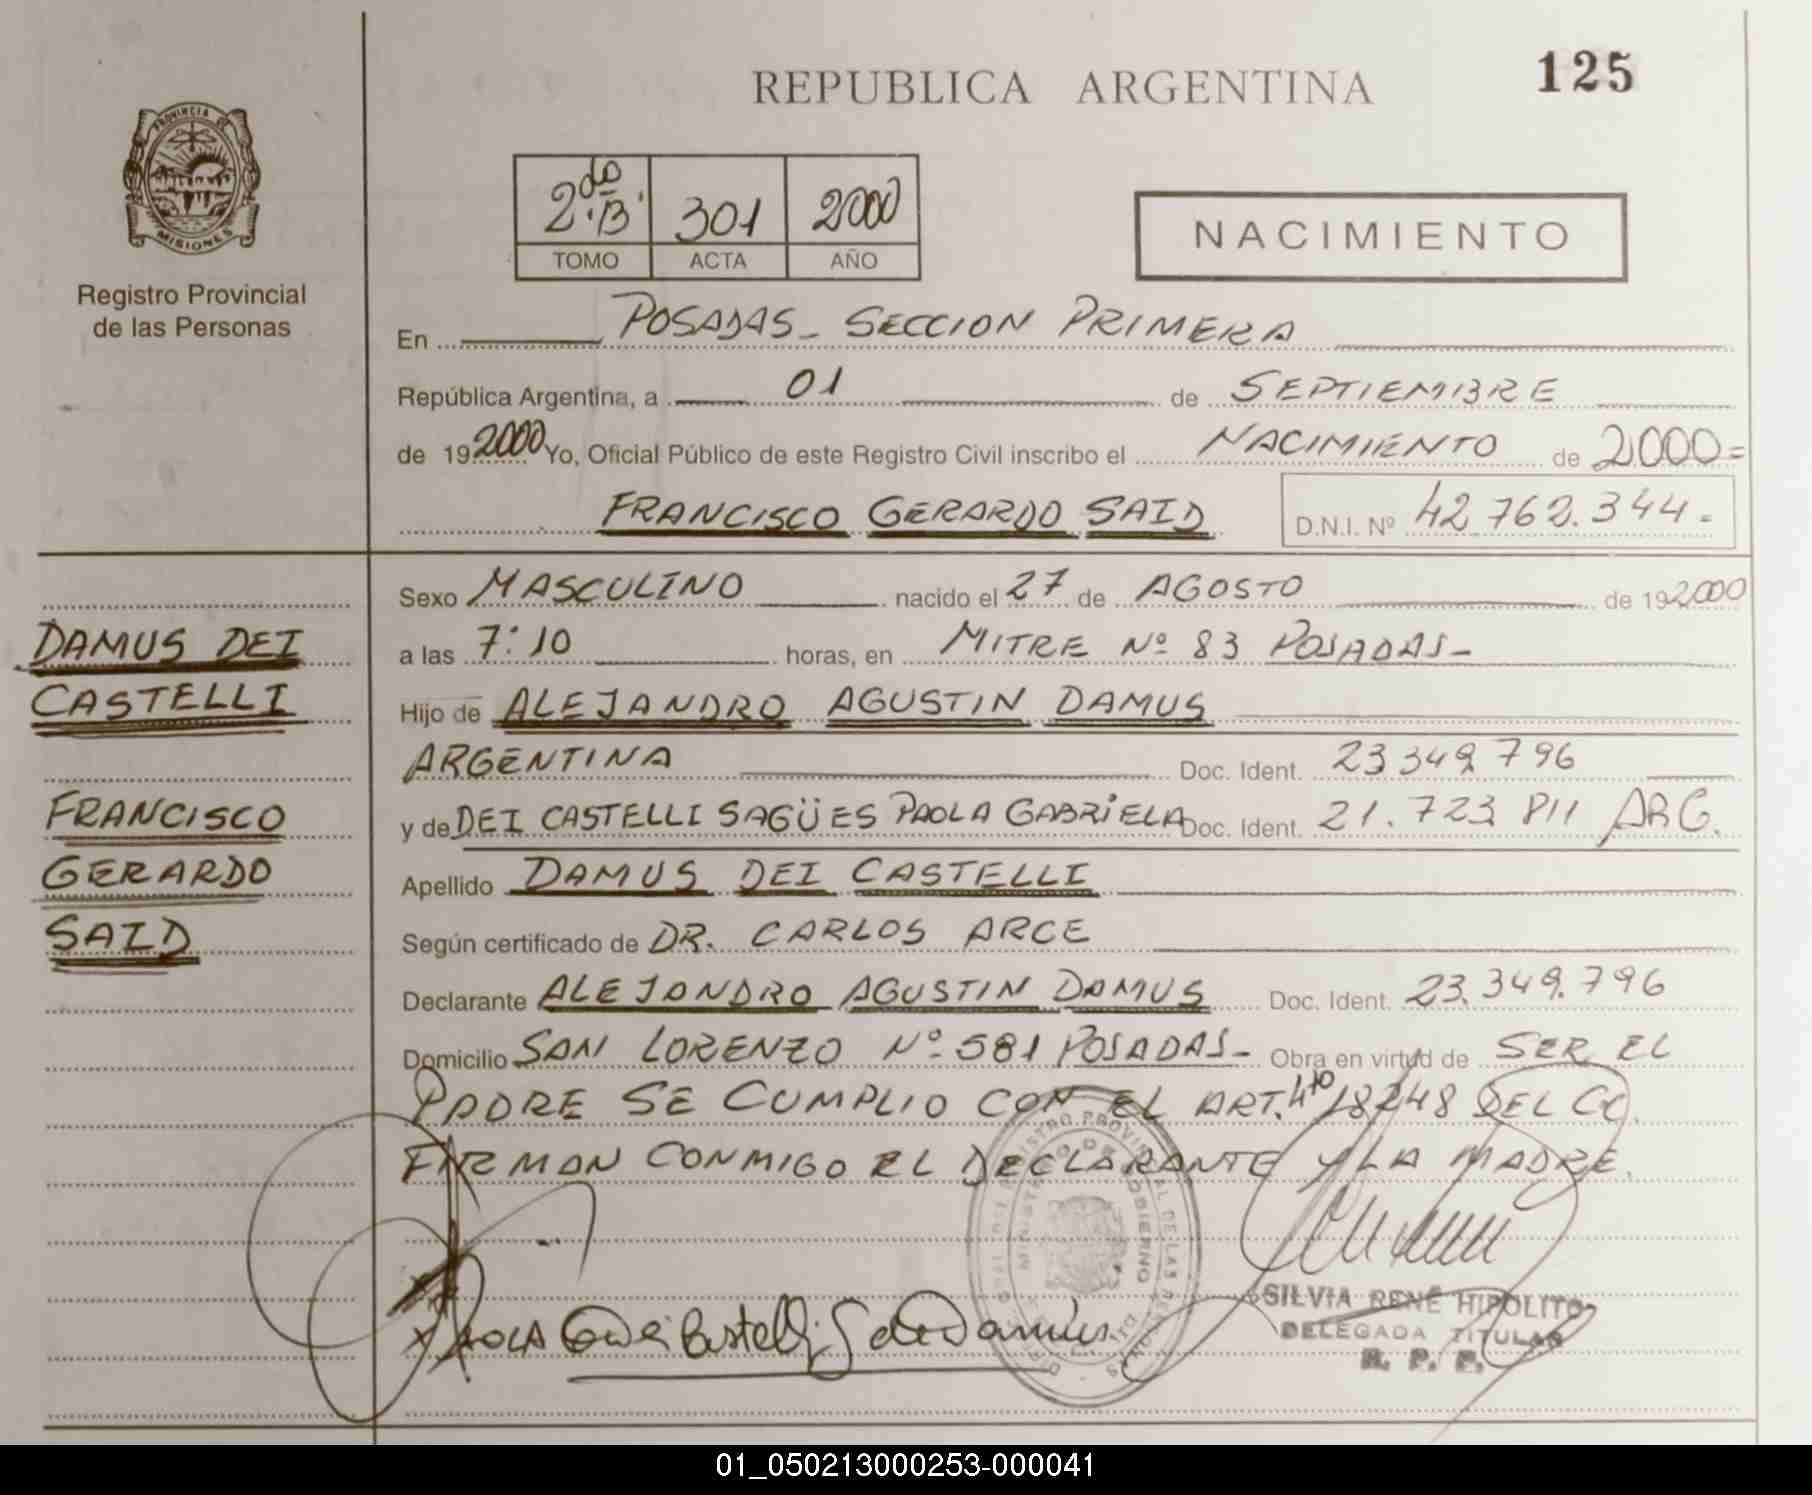 125
REPUBLICA ARGENTINA
PROVINCIA DE
MISIONES
Registro Provincial
de las Personas
2do "B" 301 2000
TOMO ACTA AÑO
NACIMIENTO
En POSADAS - SECCION PRIMERA
República Argentina, a 01 de SEPTIEMBRE
de 19 2000 Yo, Oficial Público de este Registro Civil inscribo el NACIMIENTO de 2000=
FRANCISCO GERARDO SAID D.N.I. Nº 42.762.344.=
Sexo MASCULINO nacido el 27 de AGOSTO de 19 2000
a las 7:10 horas, en MITRE Nº 83 POSADAS-
Hijo de ALEJANDRO AGUSTIN DAMUS
ARGENTINA Doc. Ident. 23.349.796
y de DEI CASTELLI SAGÜES PAOLA GABRIELA Doc. Ident. 21.723.811 ARG.
Apellido DAMUS DEI CASTELLI
Según certificado de DR. CARLOS ARCE
Declarante ALEJANDRO AGUSTIN DAMUS Doc. Ident. 23.349.796
Domicilio SAN LORENZO Nº 581 POSADAS- Obra en virtud de SER EL
PADRE SE CUMPLIO CON EL ART. 4to 18248 DEL CC.
FIRMAN CONMIGO EL DECLARANTE Y LA MADRE.
DAMUS DEI
CASTELLI
FRANCISCO
GERARDO
SAID
MINISTERIO DE GOBIERNO
SILVIA RENÉ HIPOLITO
DELEGADA TITULAR
R. P. P.
01_050213000253-000041